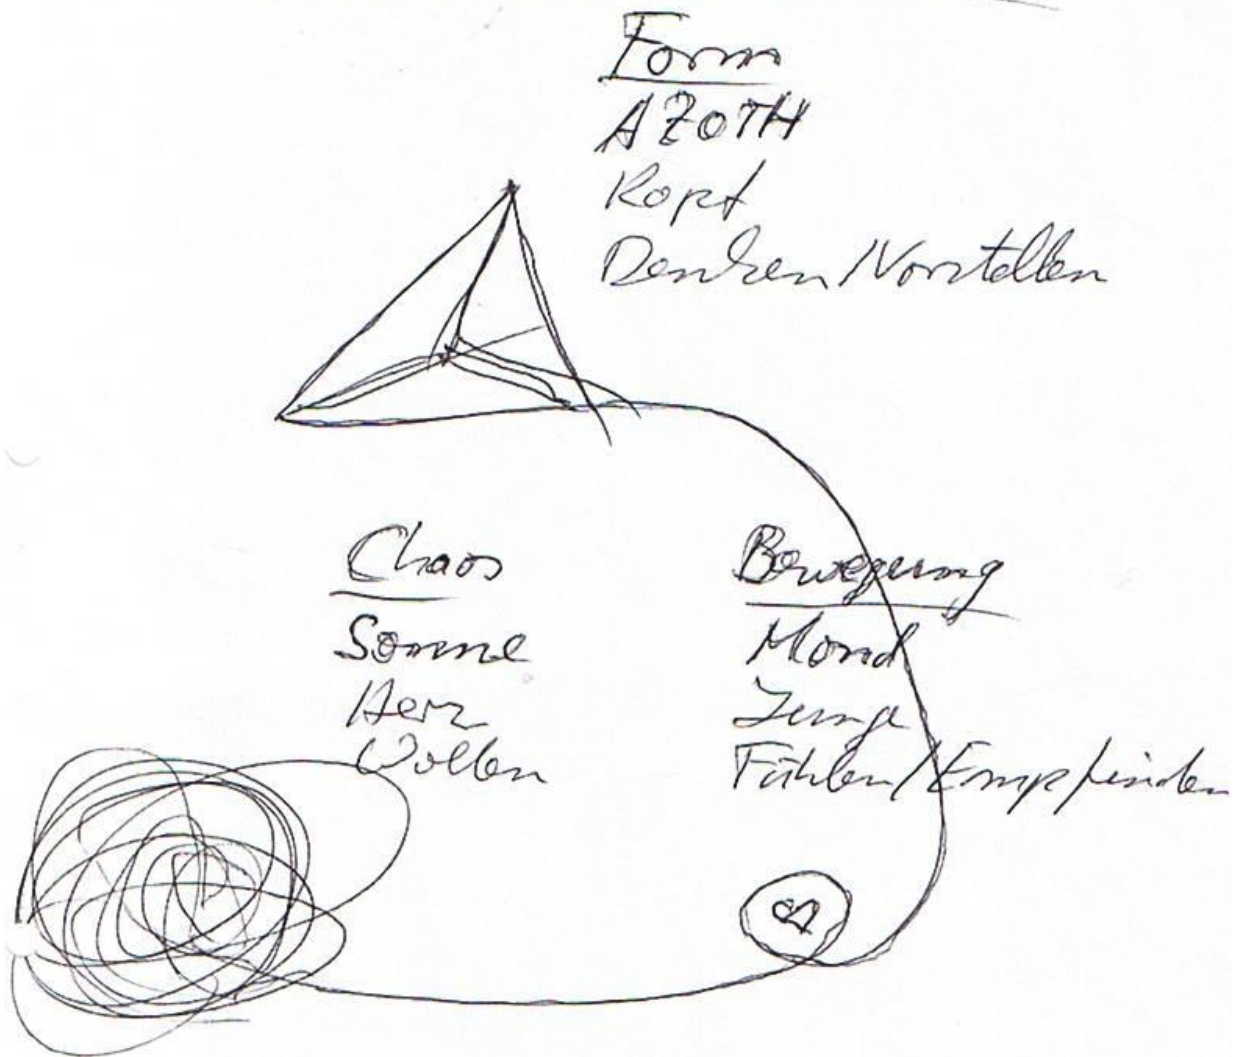 Form
AZOTH
Kopf
Denken/Vorstellen
Chaos
Sonne
Herz
Wollen
Bewegung
Mond
Lunge
Fühlen/Empfinden